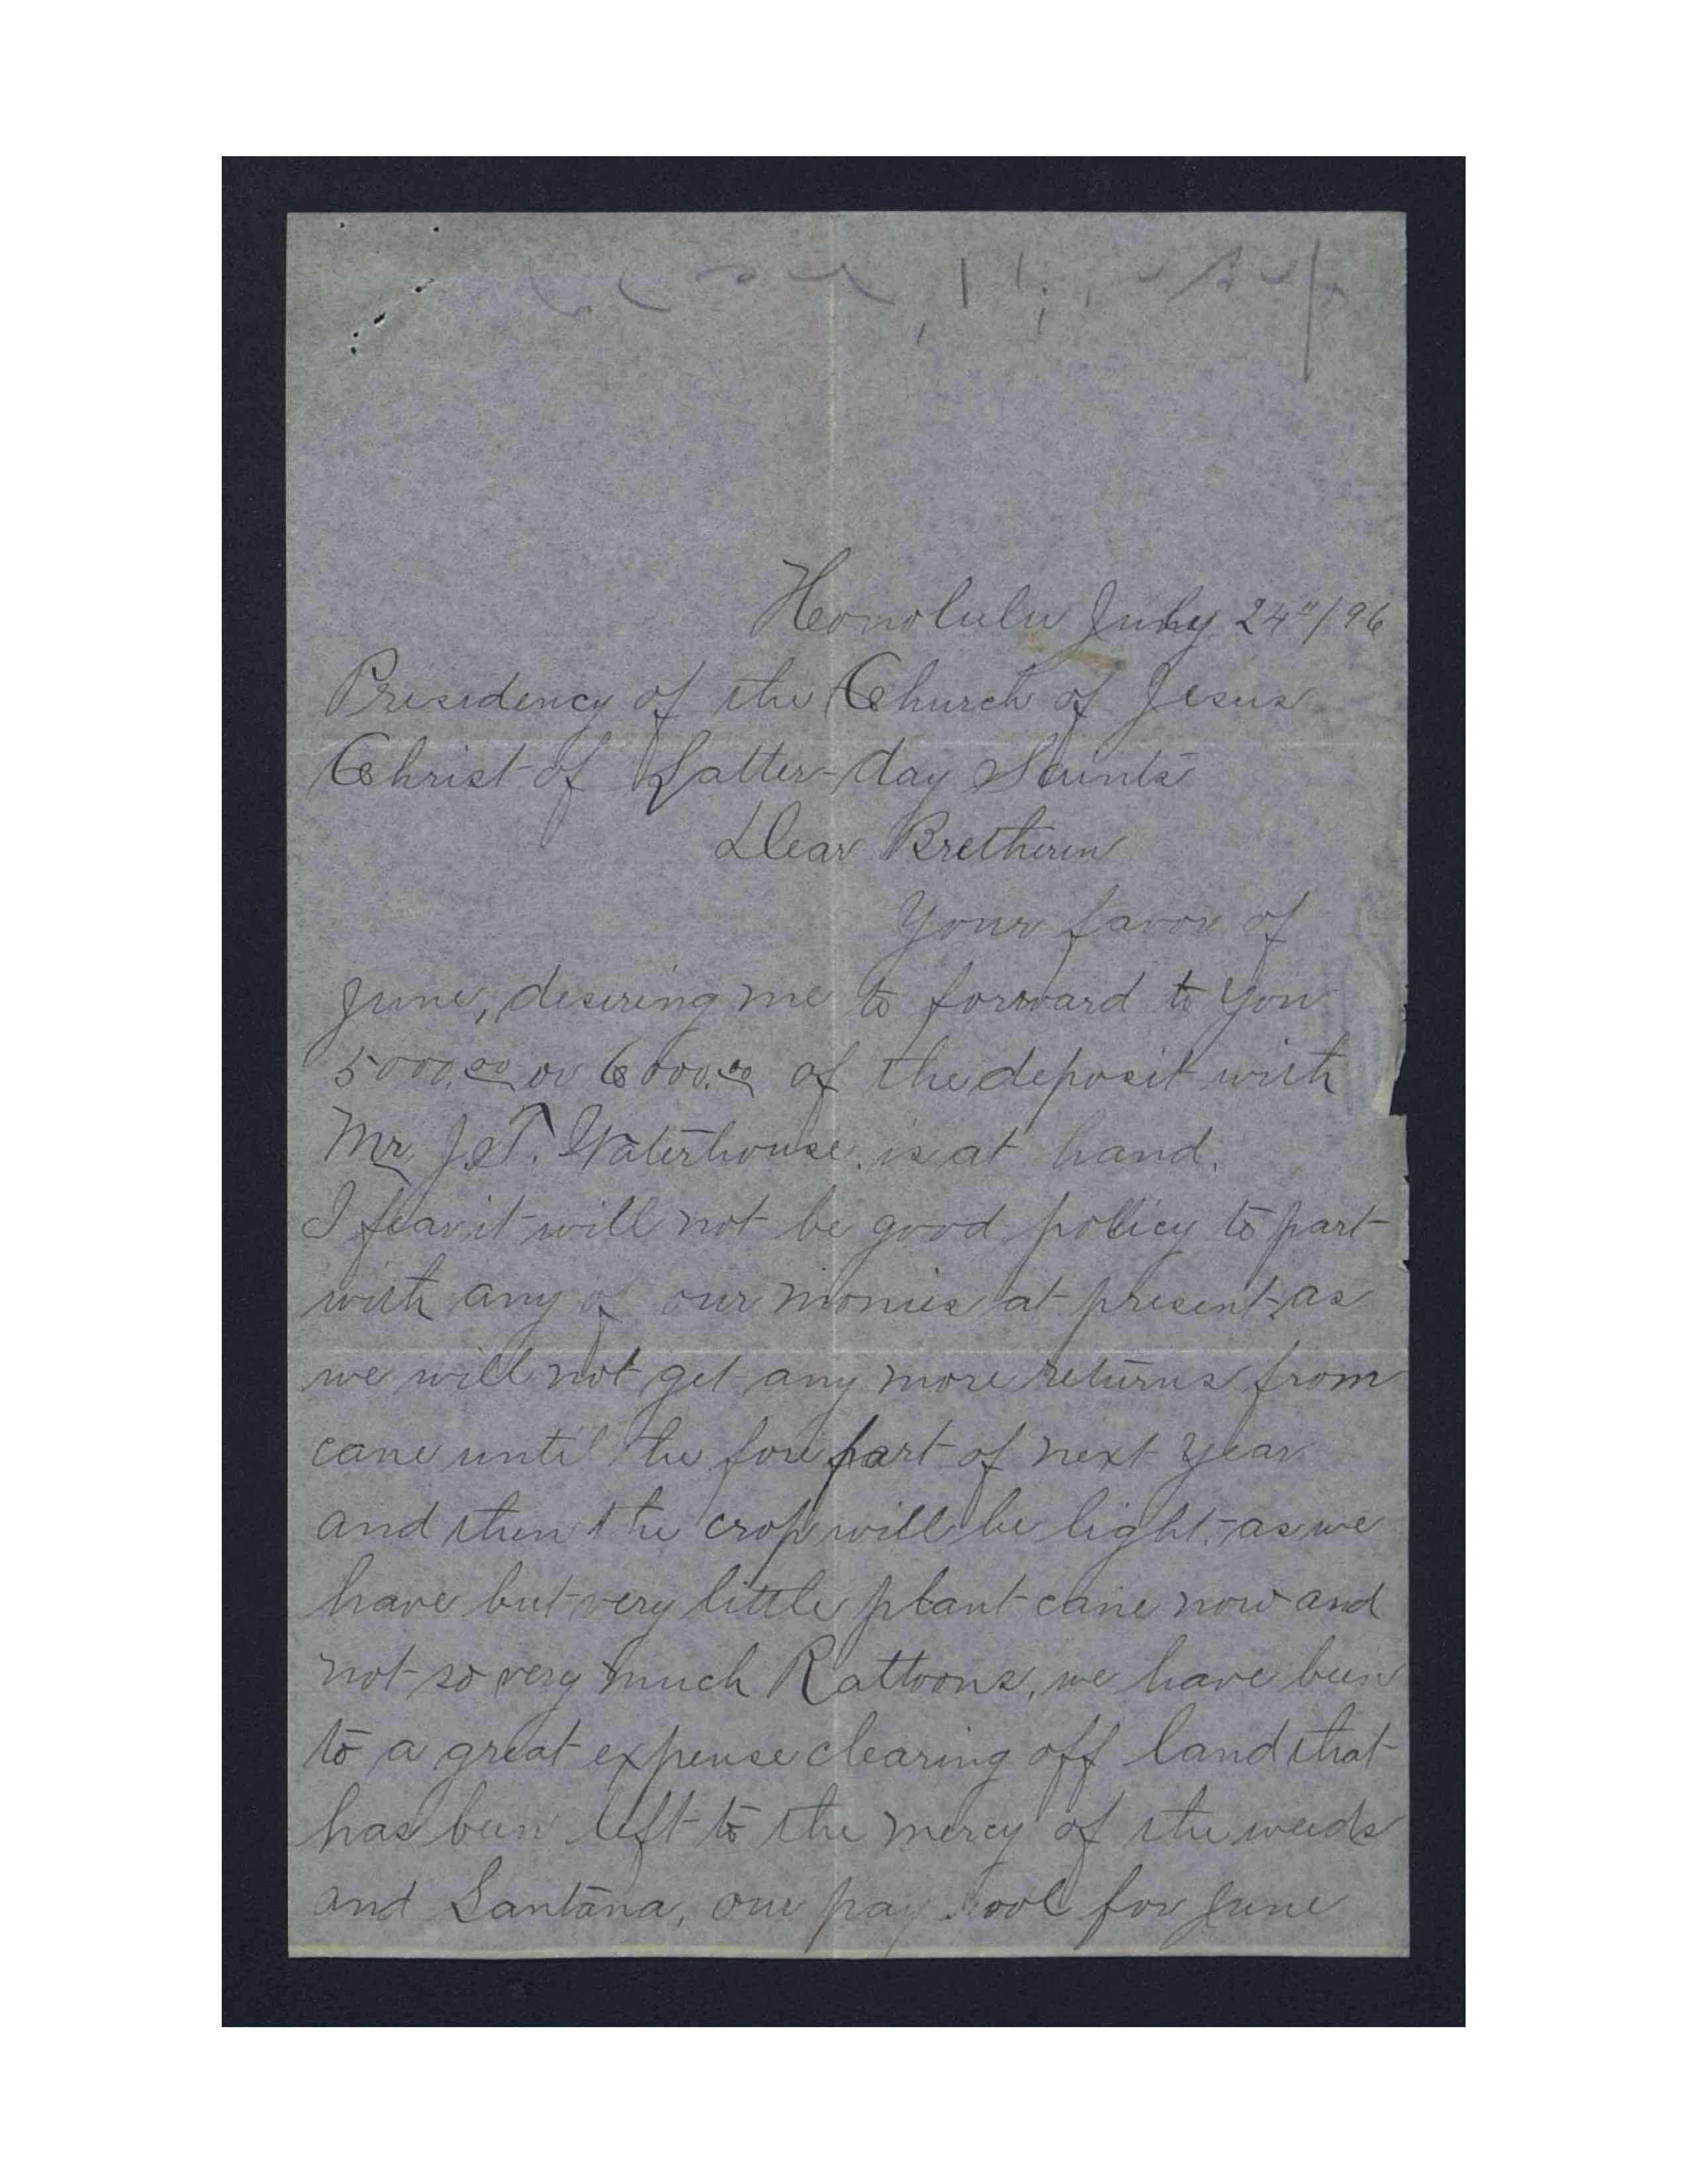 Honolulu July 24"/96
Presidency of the Church of Jesus
Christ of Latter-day Saints
Dear Bretheren
Your favor of
June, desiring me to forward to you
5000.00 or 6000.00 of the deposit with
Mr J.T. Waterhouse. is at hand.
I fear it will not be good policy to part
with any of our monies at present as
we will not get any more returns from
cane until the fore part of next year
and then the crop will be light. as we
have but very little plant cane now and
not so very much Rattoons, we have been
to a great expense clearing off land that
has been left to the mercy of the weeds
and Lantana, our pay rool for June